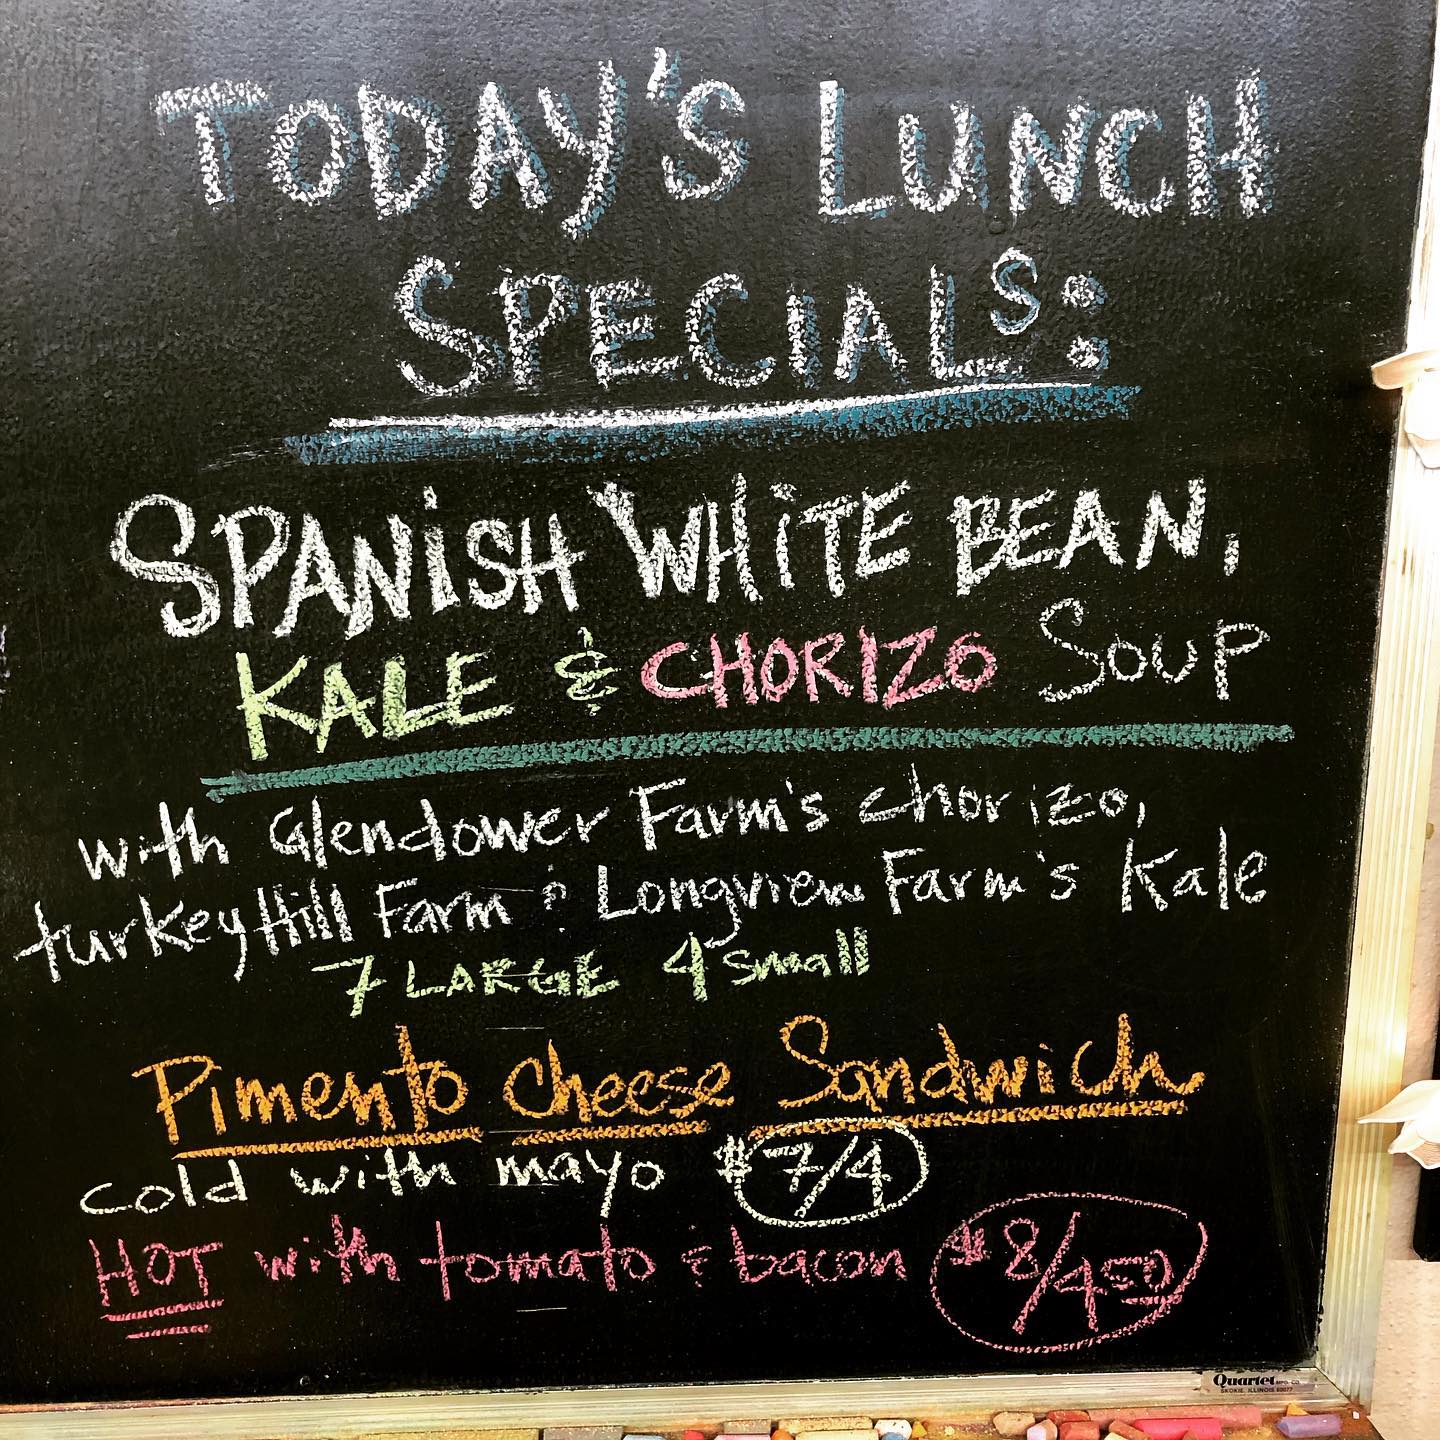 TODAY'S LUNCH
SPECIALS:
SPANISH WHITE BEAN,
KALE & CHORIZO SOUP
with Glendower Farm's chorizo,
turkey Hill Farm & Longview Farm's Kale
7 LARGE 4 small
Pimento cheese Sandwich
cold with mayo $7/4
HOT with tomato & bacon $8/4 50
Quartet MFG. CO.
SKOKIE, ILLINOIS 60077